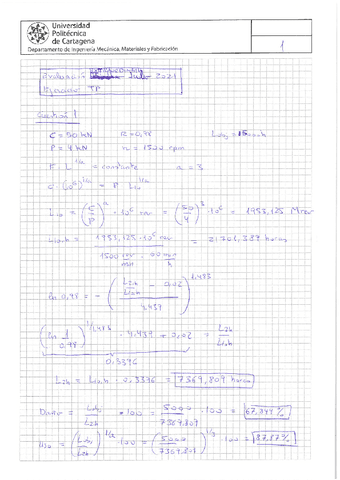 Universidad
Politécnica
de Cartagena
Departamento de Ingeniería Mecánica, Materiales y Fabricación
1
Evaluación Julio 2021
Ejercicio TP
Cuestión 1
C = 50 kN R = 0,98
P = 4 kN n = 1500 rpm
F · L^(1/a) = constante a = 3
C · (10^6)^(1/a) = P L10^(1/a)
L10 = (C/P)^a · 10^6 rev = (50/4)^3 · 10^6 = 1953,125 Mrev
L10h = 1953,125 · 10^6 rev / (1500 rev/min · 60 min/h) = 21.701,389 horas
ln 0,98 = - ((L2h/L10h - 0,02) / 4,439)^1,483
(ln 1/0,98)^(1/1,483) · 4,439 + 0,02 = L2h/L10h
0,3396
L2h = L10h · 0,3396 = 7369,809 horas
= 5000/7369,809 · 100 = 67,844 %
= (5000/7369,809)^(1/3) · 100 = 87,87 %